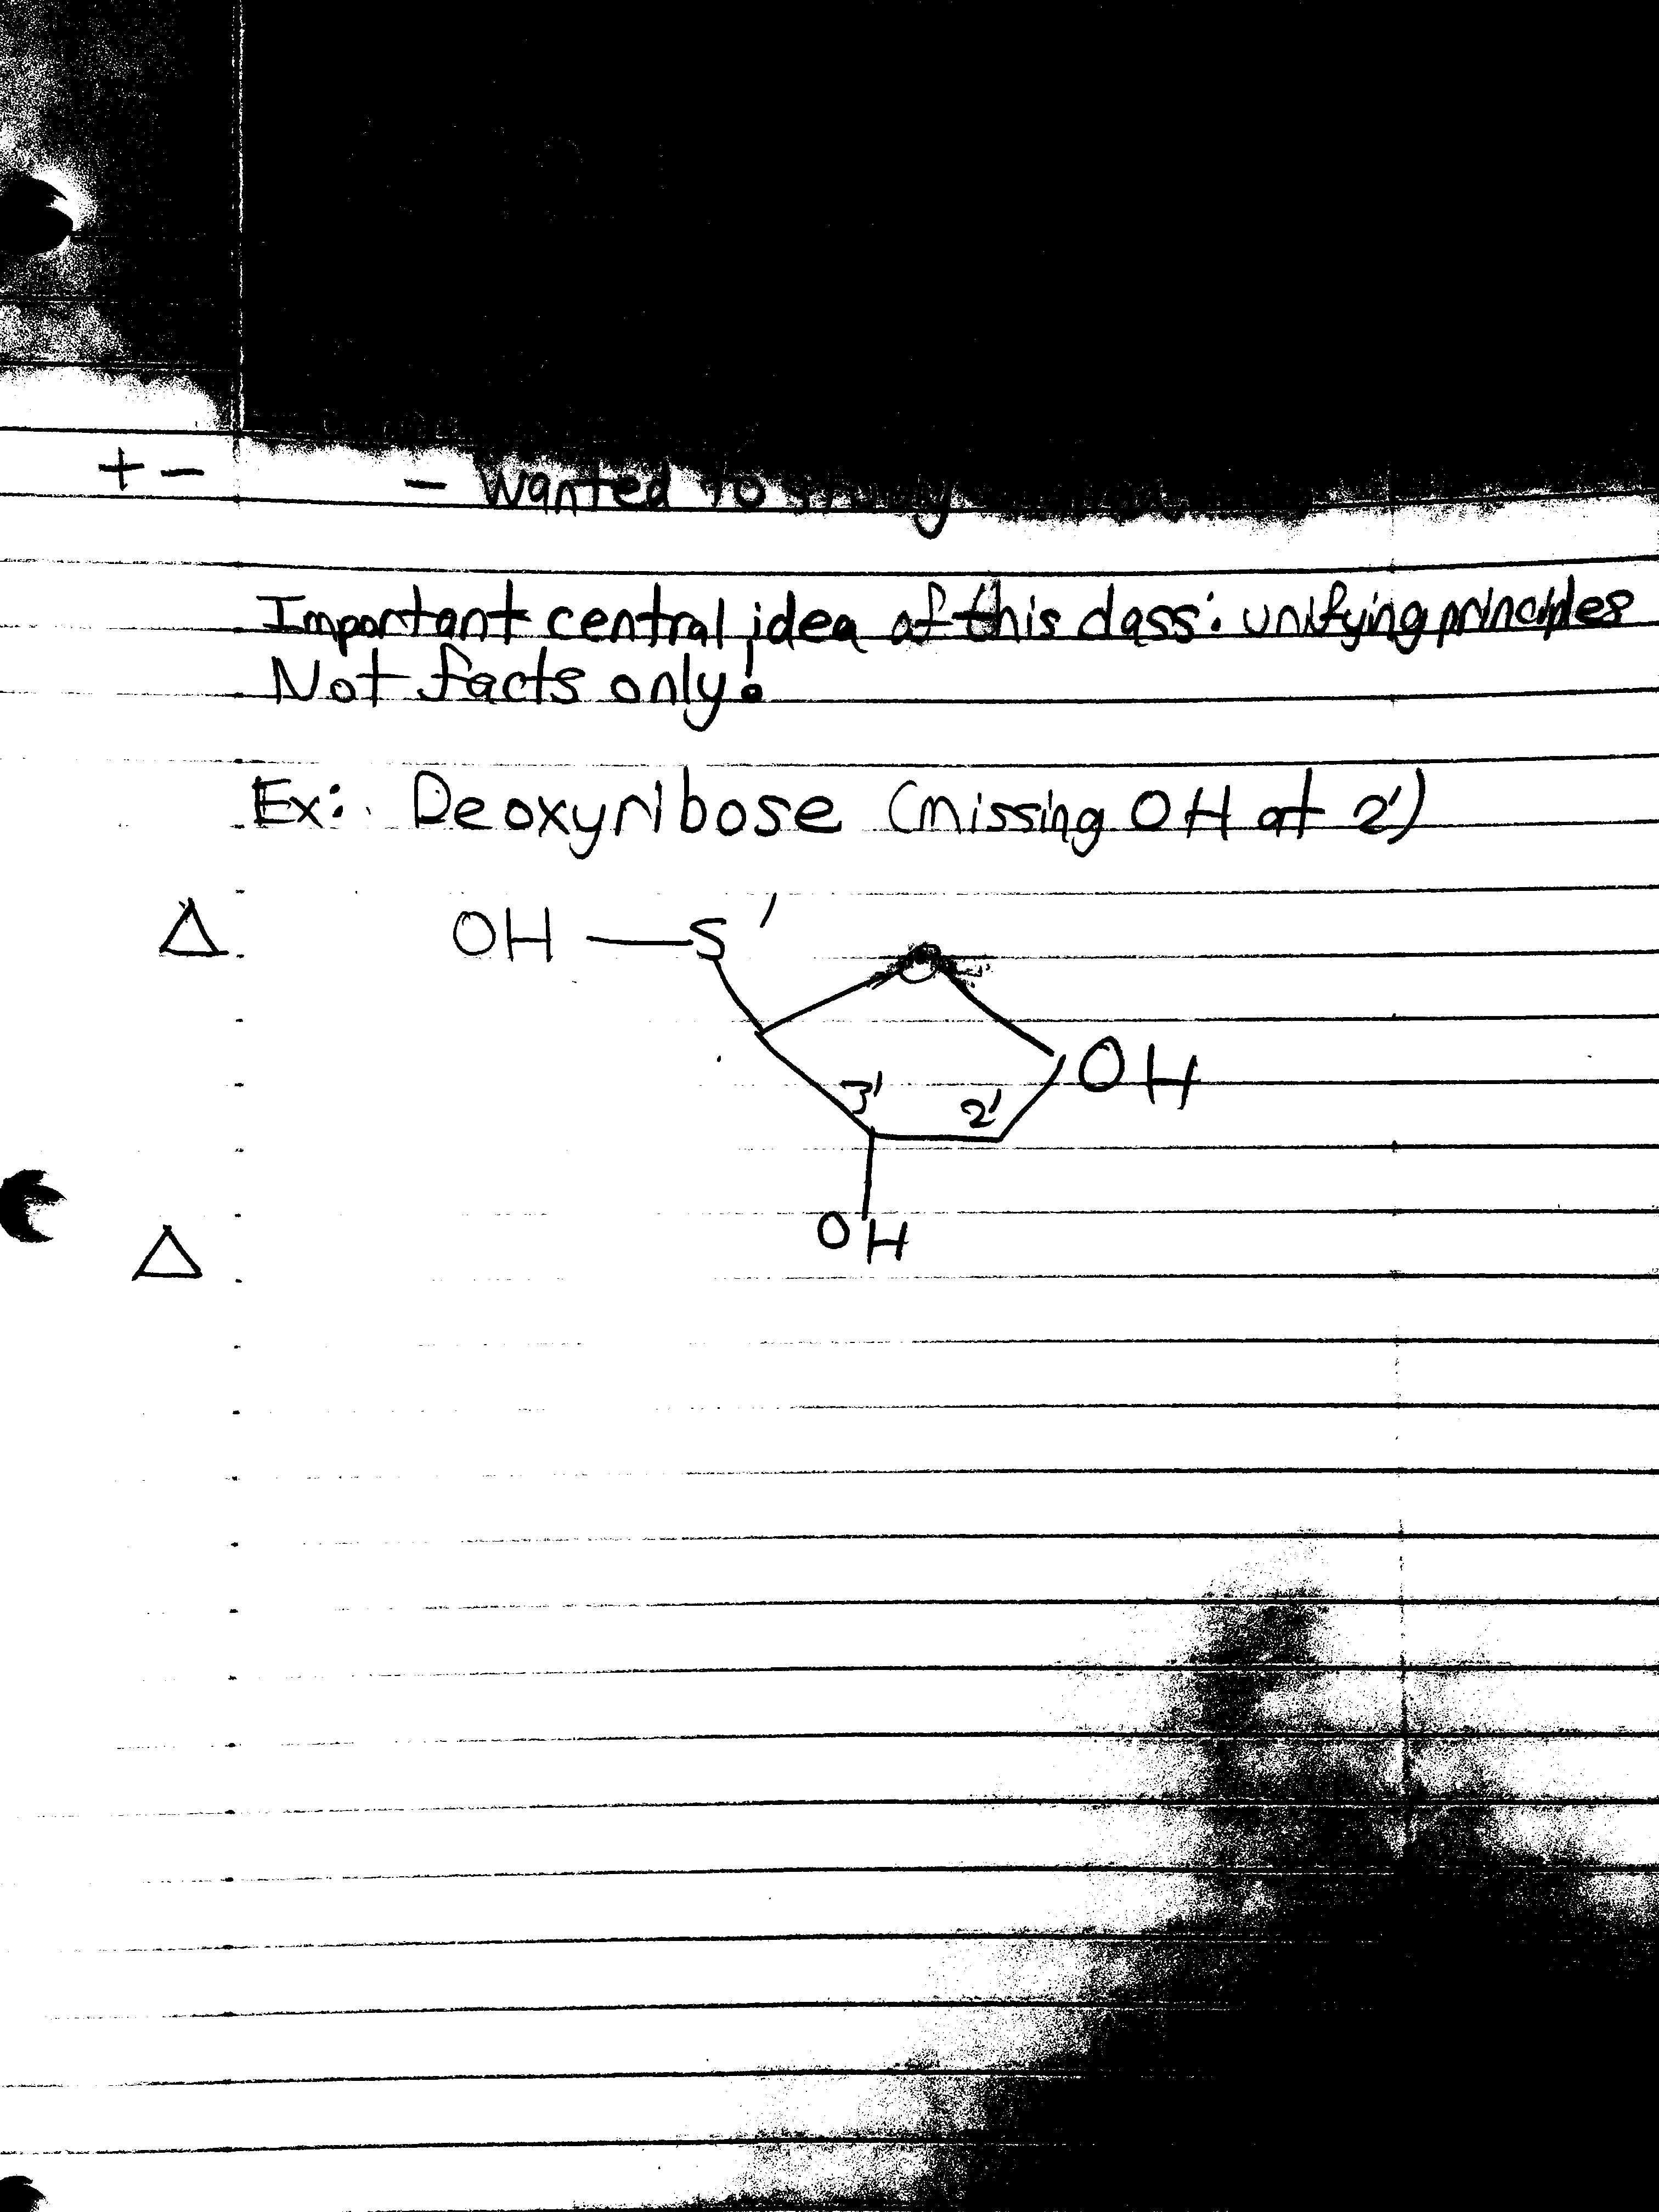 + - - Wanted to study
Important central idea of this class: unifying principles
Not facts only!
Ex: Deoxyribose (missing OH at 2')
Δ OH — 5' O
OH
3' 2'
OH
Δ